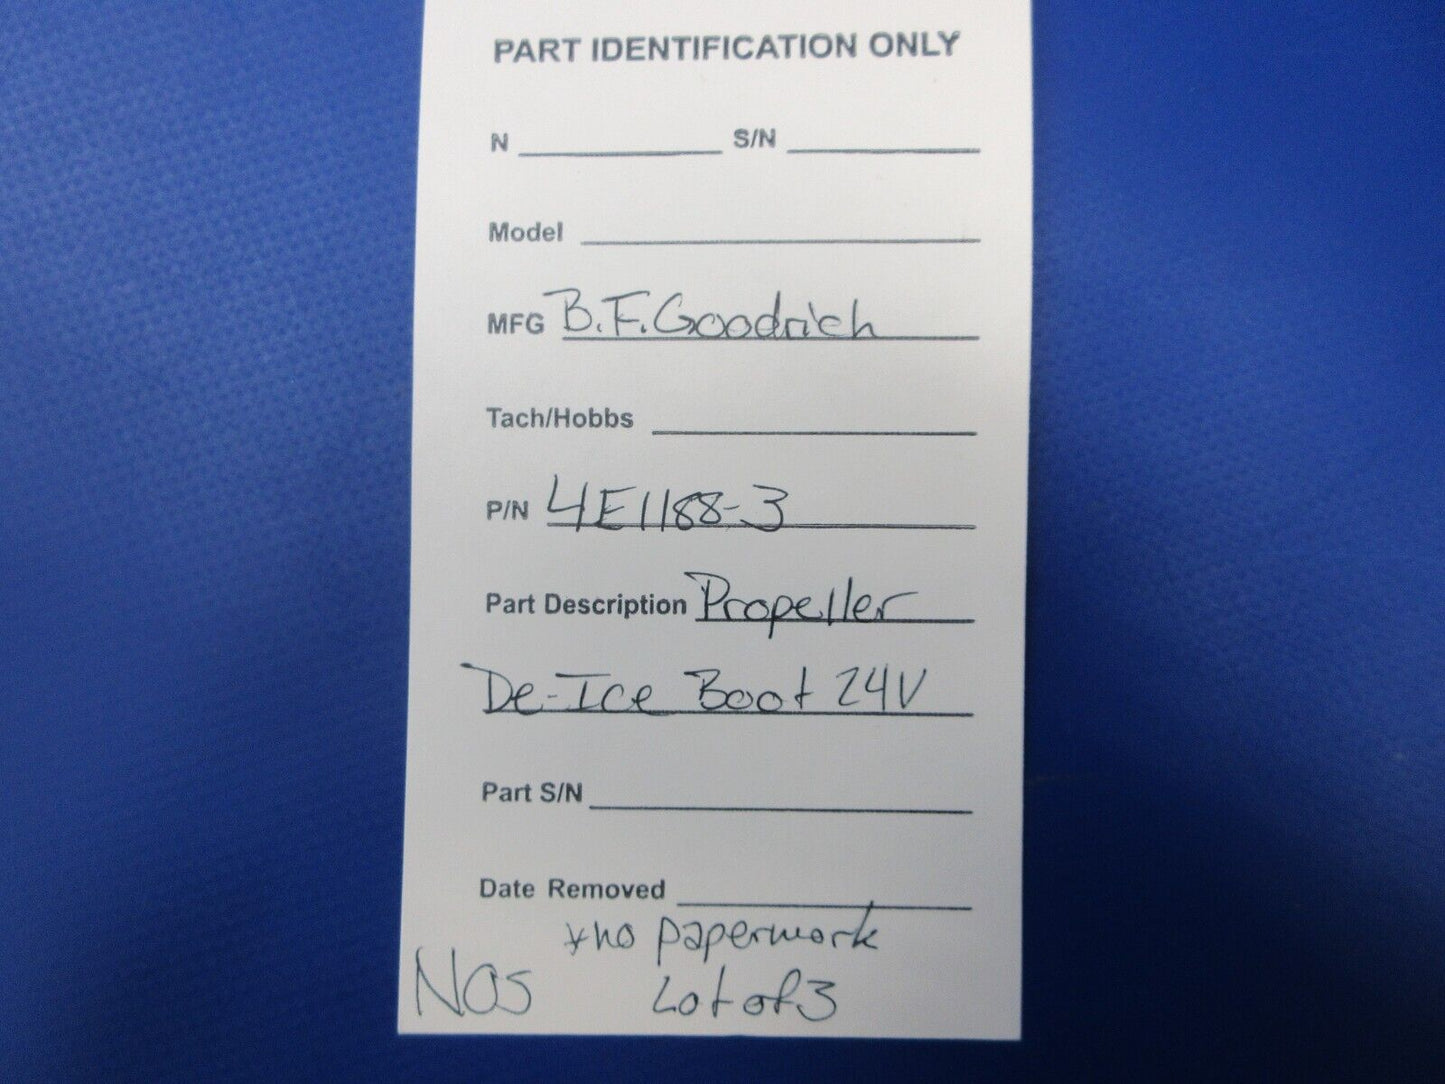 PART IDENTIFICATION ONLY
N S/N
Model
MFG B.F.Goodrich
Tach/Hobbs
P/N 4E1188-3
Part Description Propeller
De-Ice Boot 24V
Part S/N
Date Removed
*no paperwork
NOS Lot of 3